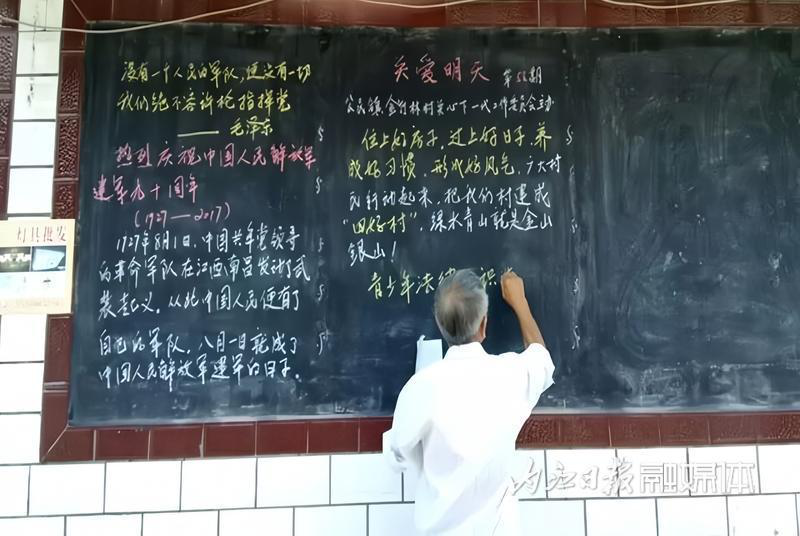 没有一个人民的军队，便没有一切
我们绝不容许枪指挥党
—— 毛泽东
热烈庆祝中国人民解放军
建军九十周年
（1927—2017）
1927年8月1日，中国共产党领导
的革命军队在江西南昌发动了武
装起义。从此中国人民便有了
自己的军队，八月一日就成了
中国人民解放军建军的日子。
关爱明天 第56期
公民镇金竹林村关心下一代工作委员会主办
住上好房子，过上好日子，养
成好习惯，形成好风气，广大村
民行动起来，把我们村建成
“四好村”，绿水青山就是金山
银山！
青少年法律
灯具批发
内江日报融媒体